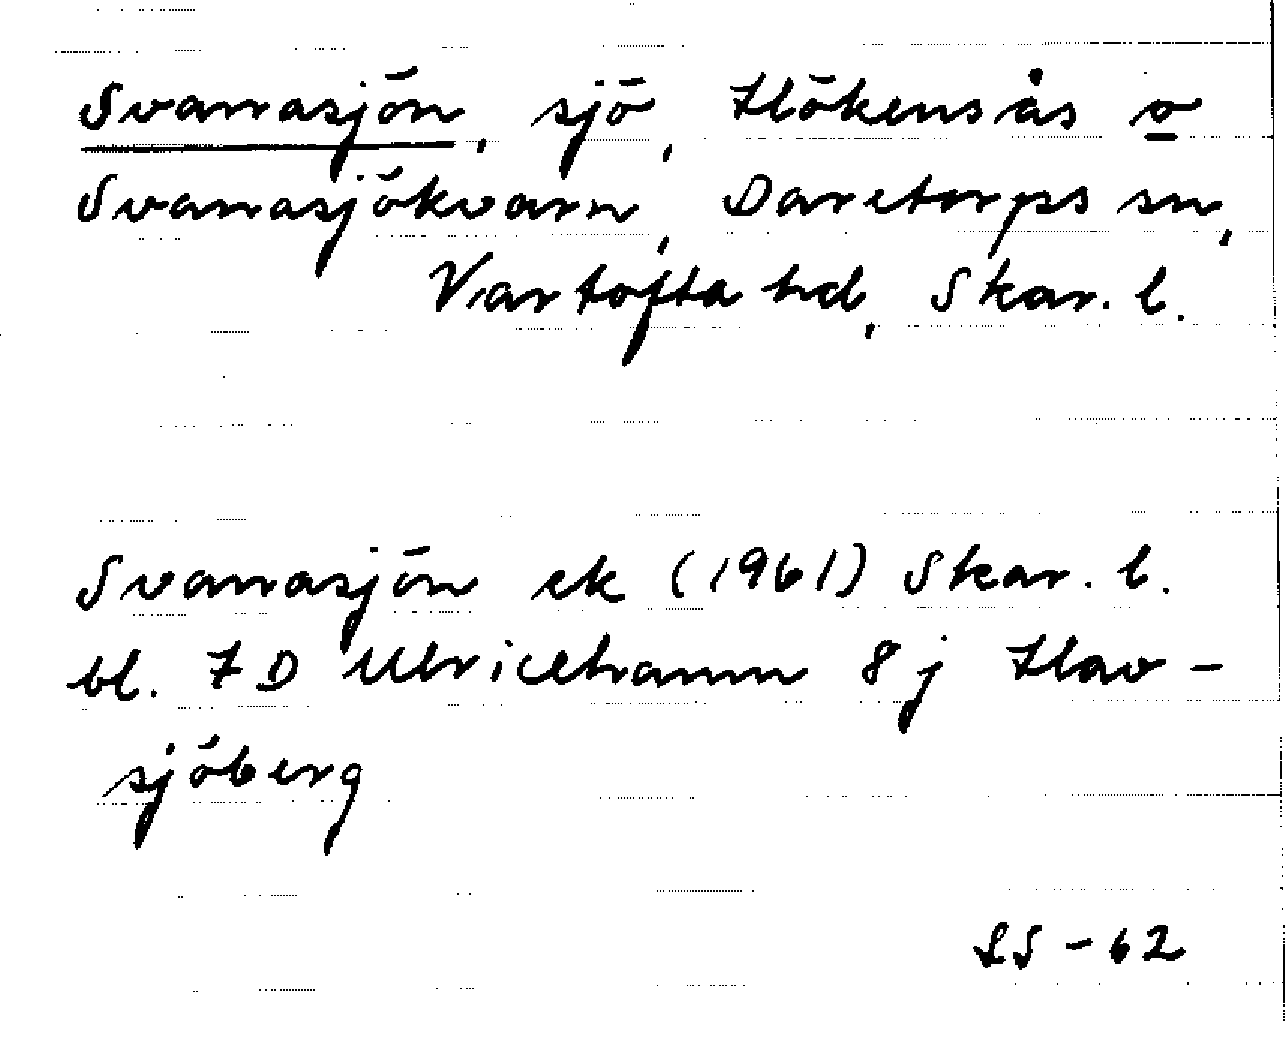 Svanasjön, sjö, Hökensås o
Svanasjökvarn, Daretorps sn,
Vartofta hd, Skar. l.
Svanasjön ek (1961) Skar. l.
bl. 7 D Ulricehamn 8 j Hav-
sjöberg
SS - 62